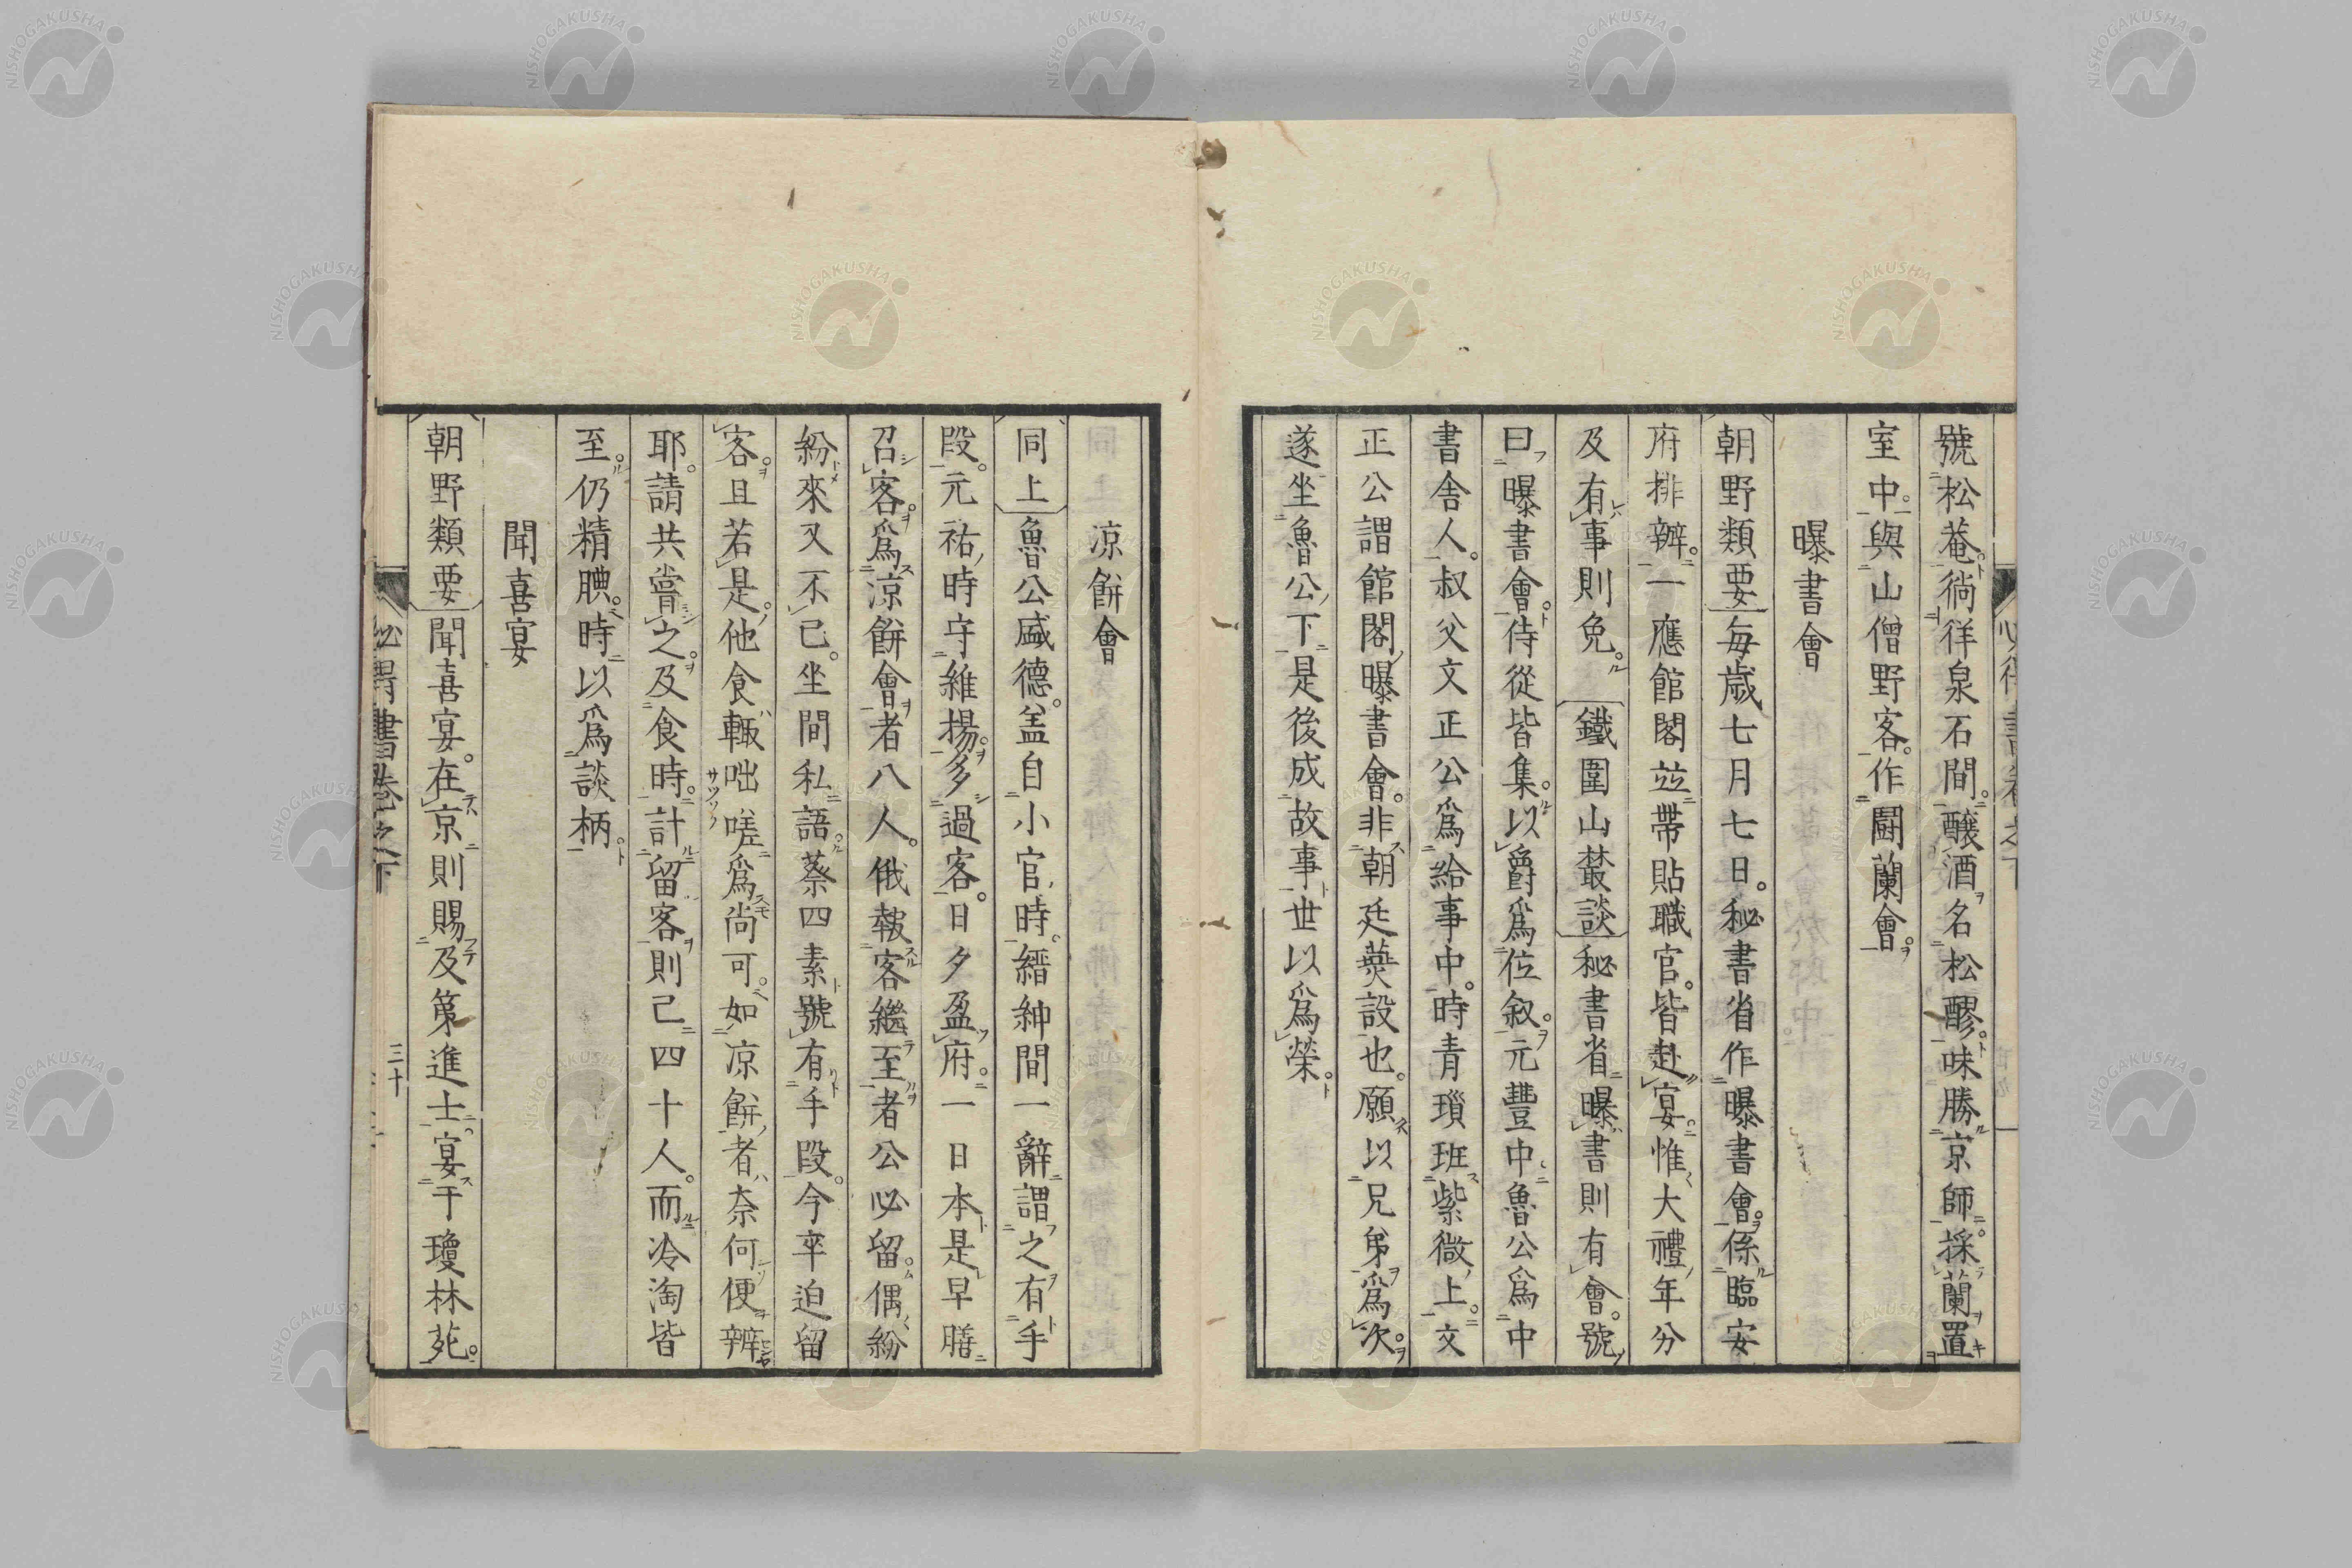 號松菴徜徉泉石間。醸酒名松醪。味勝京師。採蘭置
室中。與山僧野客。作鬪蘭會。
曝書會
朝野類要每歳七月七日。秘書省作曝書會。係臨安
府排辦。一應館閣並帶貼職官。皆赴宴。惟大禮年分
及有事則免。鐵圍山叢談秘書省曝書則有會。號
曰曝書會。侍從皆集。以爵爲位叙。元豐中魯公爲中
書舎人。叔父文正公爲給事中。時青瑣班紫微上。文
正公謂館閣曝書會。非朝廷英設也。願以兄弟爲次。
遂坐魯公下是後成故事世以爲榮。
涼餅會
同上魯公盛德。盖自小官時。縉紳間一辭謂之有手
段。元祐時守維揚。多過客。日夕盈府。一日本是早膳
召客。爲涼餅會者八人。俄報客繼至者公必留。偶紛
紛來又不已。坐間私語。蔡四素號有手段。今卒迫留
客。且若是。他食輙咄嗟爲尚可。如涼餅者奈何便辦
耶。請共嘗之。及食時。計留客則已四十人。而冷淘皆
至。仍精腆。時以爲談柄。
聞喜宴
朝野類要聞喜宴。在京則賜及第進士宴于瓊林苑。
必得書卷之下
三十